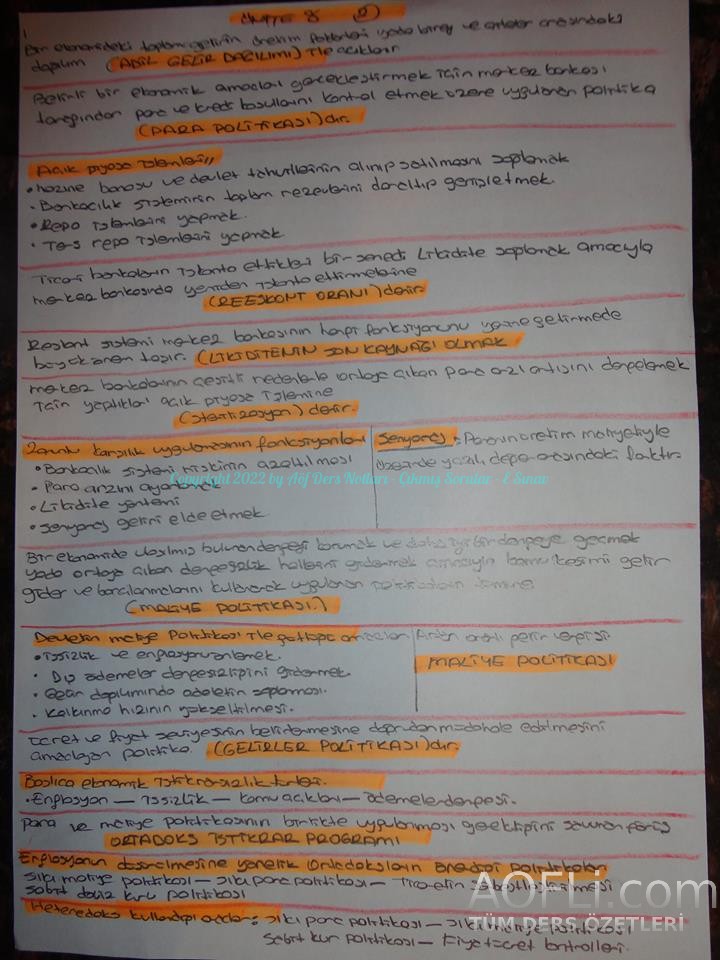 1
Bir ekonomideki toplam gelirin üretim faktörleri yada birey ve aileler arasındaki
dağılım (ADİL GELİR DAĞILIMI) ile açıklanır
Belirli bir ekonomik amaçları gerçekleştirmek için merkez bankası
tarafından para ve kredi koşullarını kontrol etmek üzere uygulanan politika
(PARA POLİTİKASI) dır.
Açık piyasa işlemleri;
• hazine bonosu ve devlet tahvillerinin alınıp satılmasını sağlamak
• Bankacılık sisteminin toplam rezervlerini daraltıp genişletmek.
• Repo işlemlerini yapmak.
• Ters repo işlemlerini yapmak
Ticari bankaların iskonto ettikleri bir senedi likidite sağlamak amacıyla
merkez bankasında yeniden iskonto ettirmelerine
(REESKONT ORANI) denir
Reskont sistemi merkez bankasının hangi fonksiyonunu yerine getirmede
büyük önem taşır. (LİKİDİTENİN SON KAYNAĞI OLMAK
merkez bankalarının çeşitli nedenlerle ortaya çıkan para arzı artışını dengelemek
için yaptıkları açık piyasa işlemine
(sterilizasyon) denir.
Zorunlu karşılık uygulamasının fonksiyonları
• Bankacılık sistemi riskinin azaltılması
• Para arzını ayarlamak
• Likidite yöntemi
• senyoraj geliri elde etmek
Senyoraj: Paranın üretim maliyetiyle
üzerinde yazılı değer arasındaki farktır.
Copyright 2022 by Aöf Ders Notları - Çıkmış Sorular - E Sınav
Bir ekonomide ulaşılmış bulunan dengeyi korumak ve daha iyi bir dengeye geçmek
yada ortaya çıkan dengesizlik hallerini gidermek amacıyla kamu kesimi gelir
gider ve borçlanmalarını kullanarak uygulanan politikaların tümüne
(MALİYE POLİTİKASI.)
Devletin maliye Politikası ile güttüğü amaçlar
• işsizlik ve enflasyonu önlemek.
• Dış ödemeler dengesizliğini gidermek
• Gelir dağılımında adaletin sağlanması.
• Kalkınma hızının yükseltilmesi.
Artan oranlı gelir vergisi
MALİYE POLİTİKASI
ücret ve fiyat seviyesinin belirlenmesine doğrudan müdahale edilmesini
amaçlayan politika. (GELİRLER POLİTİKASI) dır.
Başlıca ekonomik istikrarsızlık türleri.
• Enflasyon — işsizlik — kamu açıkları — ödemeler dengesi.
para ve maliye politikasının birlikte uygulanması gerektiğini savunan görüş
ORTADOKS İSTİKRAR PROGRAMI
Enflasyonun düşürülmesine yönelik Ortadoksların önerdiği politikalar
sıkı maliye politikası — sıkı para politikası — Ticaretin serbestleştirilmesi
sabit döviz kuru politikası
Heteredoks kullandığı araçlar: sıkı para politikası — sıkı maliye politikası
sabit kur politikası — Fiyat ücret kontrolleri.
AOFLi.com
TÜM DERS ÖZETLERİ